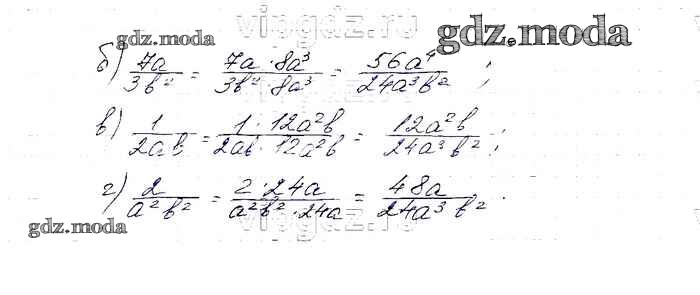 vipgdz.ru
gdz.moda
gdz.moda
б) 7a/3b² = 7a · 8a³/3b² · 8a³ = 56a⁴/24a³b² ;
в) 1/2ab = 1 · 12a²b/2ab · 12a²b = 12a²b/24a³b² ;
г) 2/a²b² = 2 · 24a/a²b² · 24a = 48a/24a³b² .
gdz.moda
vipgdz.ru